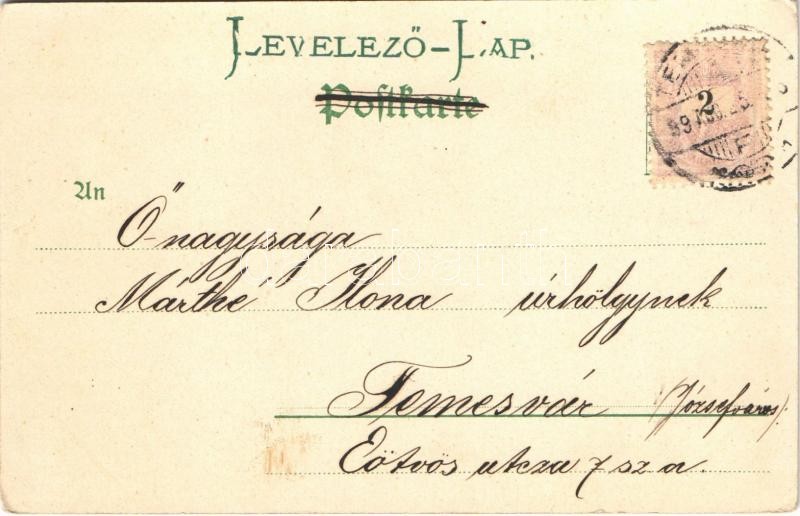 LEVELEZŐ-LAP.
Postkarte
2
An
Ő-nagysága
Márthé Ilona úrhölgynek
Temesvár (Józsefváros).
Eötvös utcza 7 sz a.